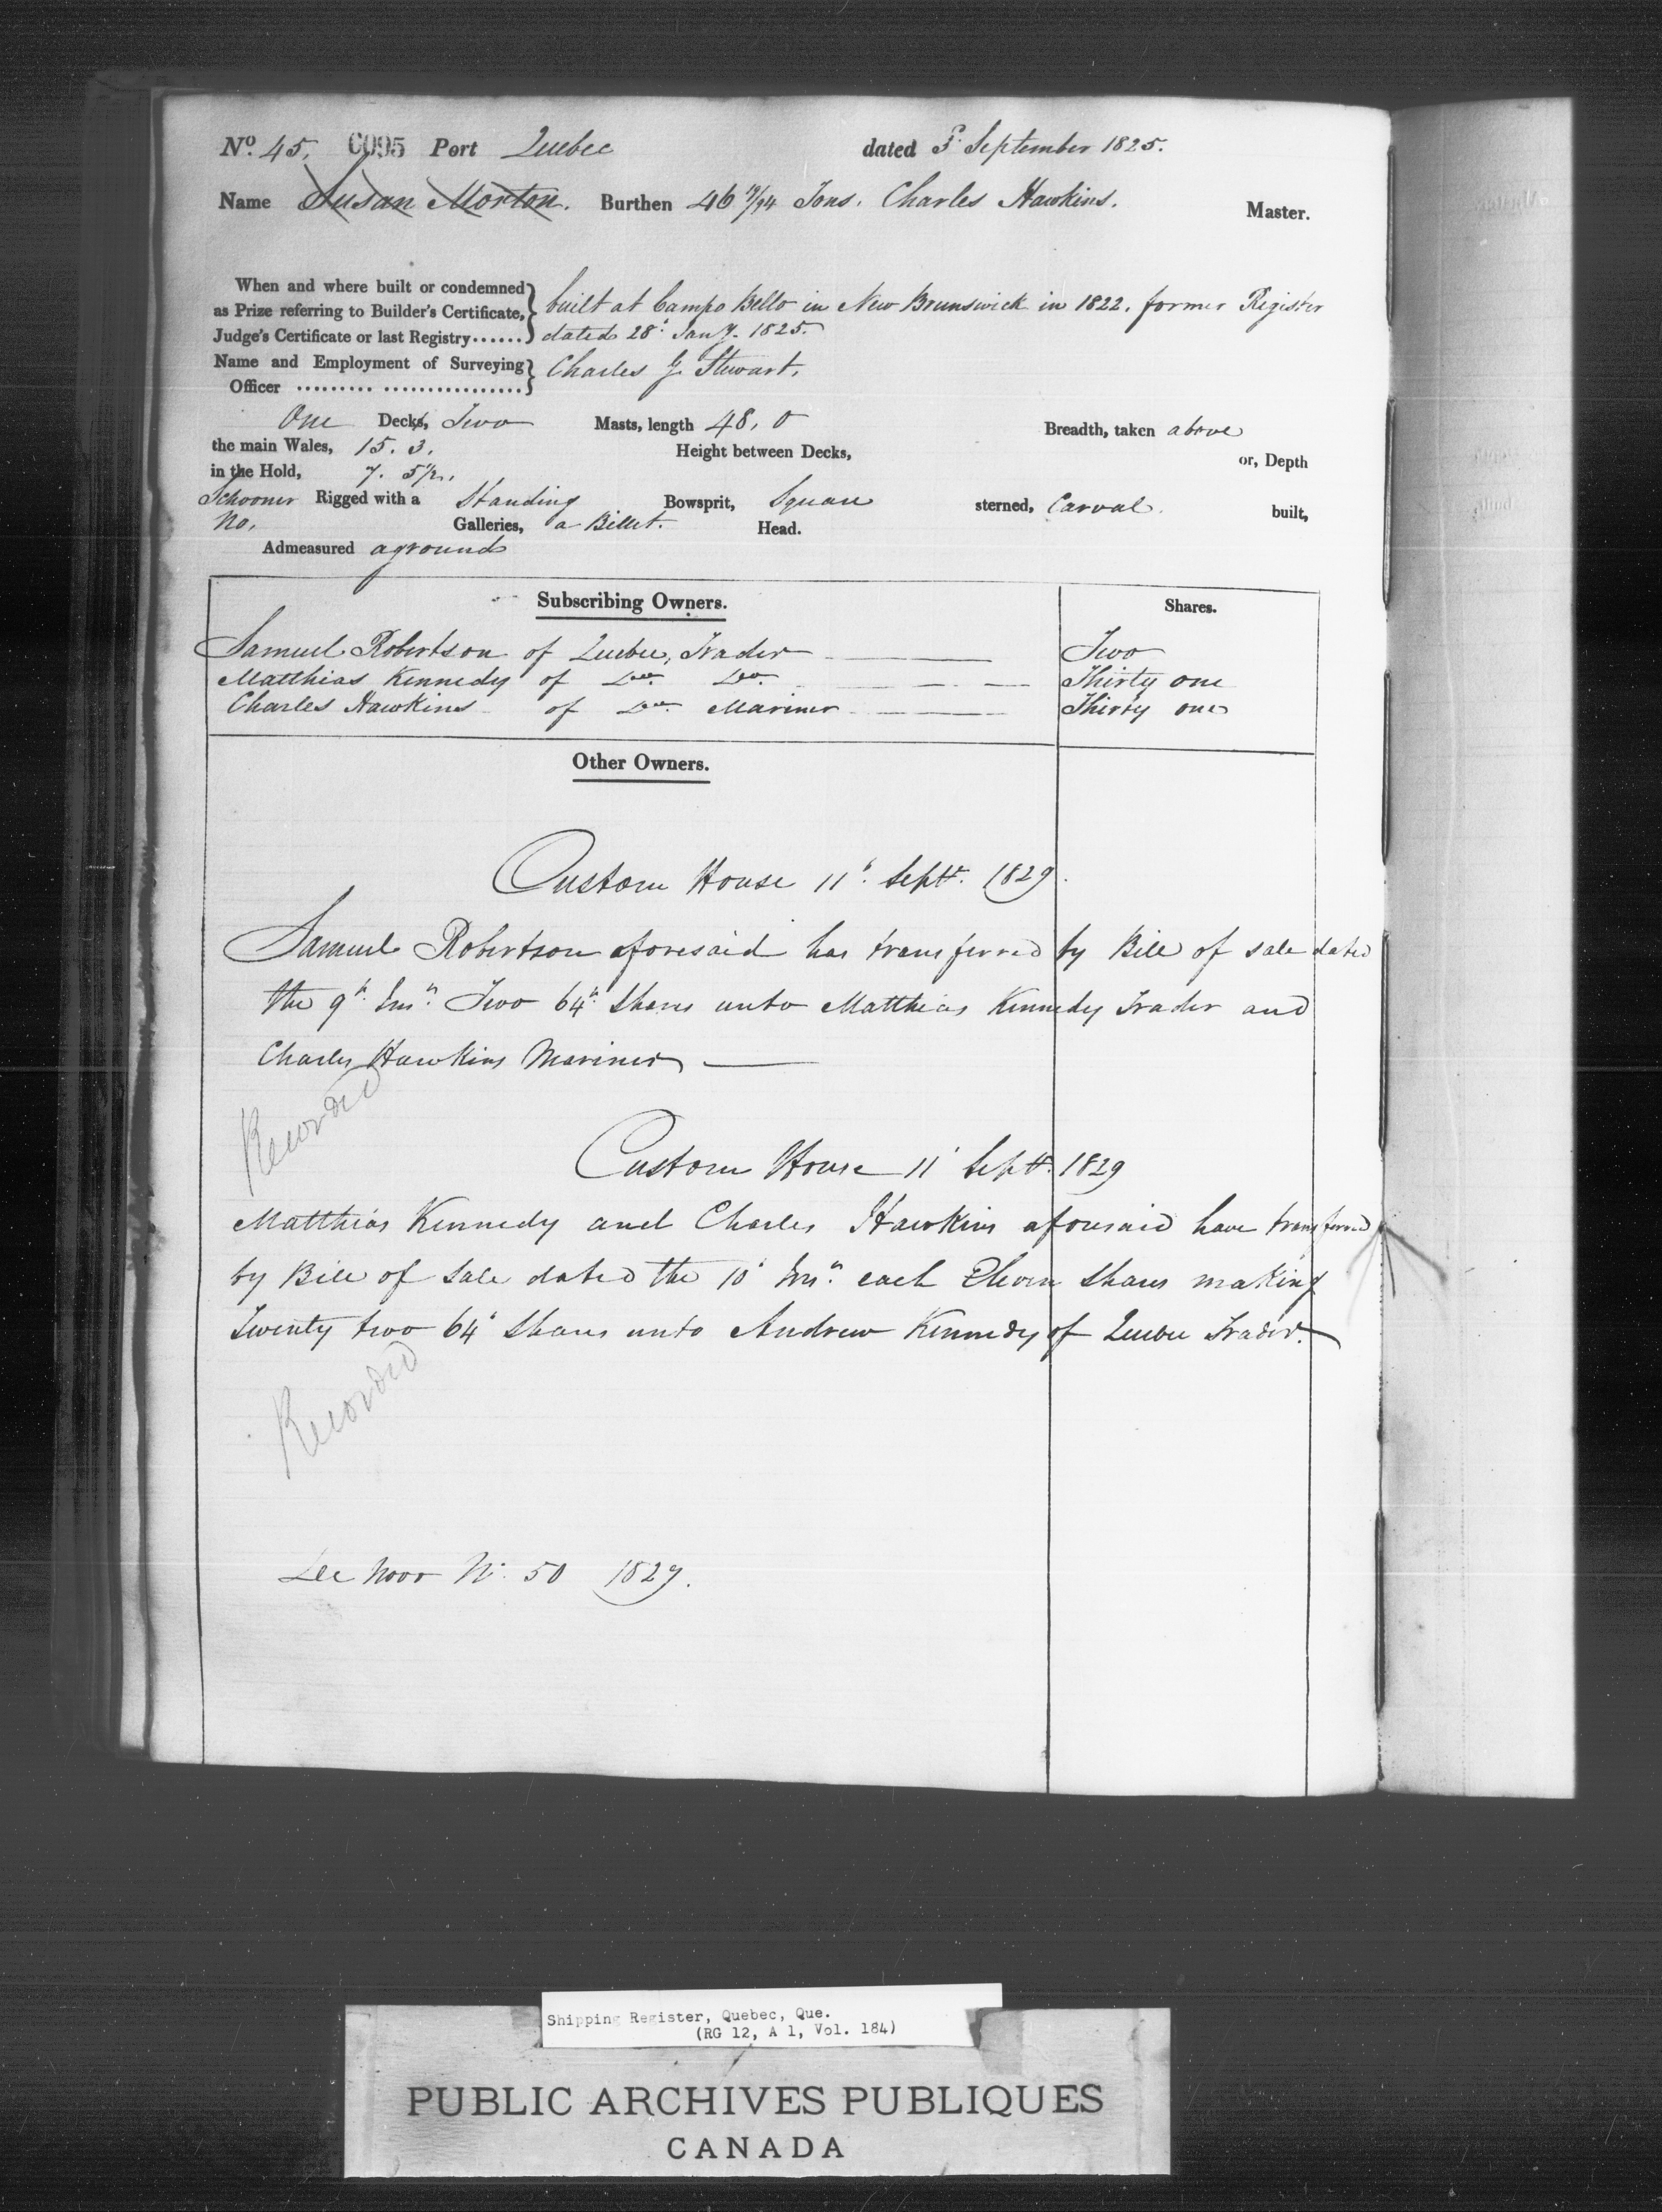 No. 45. C095 Port Quebec dated 5th September 1825.
Name Susan Morton. Burthen 46 /94 Tons. Charles Hawkins. Master.
When and where built or condemned as Prize referring to Builder's Certificate, Judge's Certificate or last Registry...... } built at Campo Bello in New Brunswick in 1822. former Register
dated 28th Jany. 1825.
Name and Employment of Surveying Officer ......... ................ } Charles G. Stewart.
One Decks, Two Masts, length 48, 0 Breadth, taken above
the main Wales, 15. 3. Height between Decks, or, Depth
in the Hold, 7. 5 1/2.
Schooner Rigged with a Standing Bowsprit, Square sterned, Carval. built,
No. Galleries, a Billet. Head.
Admeasured aground
Subscribing Owners. Shares.
Samuel Robertson of Quebec, Trader Two
Matthias Kennedy of Do. Do. Thirty one
Charles Hawkins of Do. Mariner Thirty one
Other Owners.
Custom House 11th. Septr. 1829.
Samuel Robertson aforesaid has transferred by Bill of sale dated
the 9th. Inst. Two 64th. Shares unto Matthias Kennedy Trader and
Charles Hawkins Mariner
Recorded
Custom House 11th Septr. 1829
Matthias Kennedy and Charles Hawkins aforesaid have transferred
by Bill of Sale dated the 10th Inst. each Eleven Shares making
Twenty two 64th Shares unto Andrew Kennedy of Quebec Trader.
Recorded
De Novo No. 50 1829.
Shipping Register, Quebec, Que.
(RG 12, A 1, Vol. 184)
PUBLIC ARCHIVES PUBLIQUES
CANADA